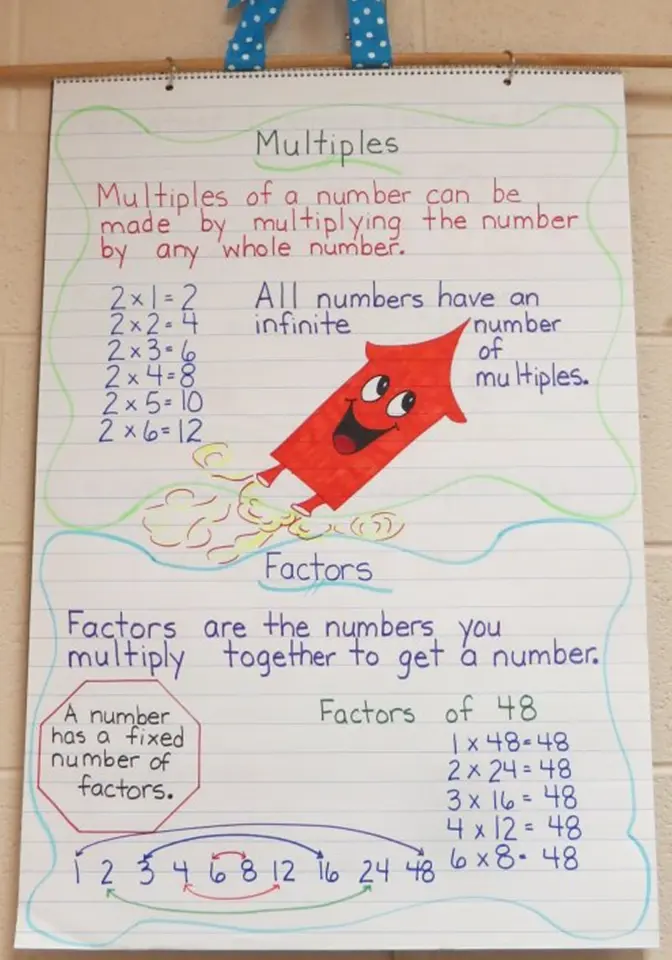 Multiples
Multiples of a number can be
made by multiplying the number
by any whole number.
2 x 1 = 2
2 x 2 = 4
2 x 3 = 6
2 x 4 = 8
2 x 5 = 10
2 x 6 = 12
All numbers have an
infinite number
of
multiples.
Factors
Factors are the numbers you
multiply together to get a number.
A number
has a fixed
number of
factors.
Factors of 48
1 x 48 = 48
2 x 24 = 48
3 x 16 = 48
4 x 12 = 48
6 x 8 = 48
1 2 3 4 6 8 12 16 24 48